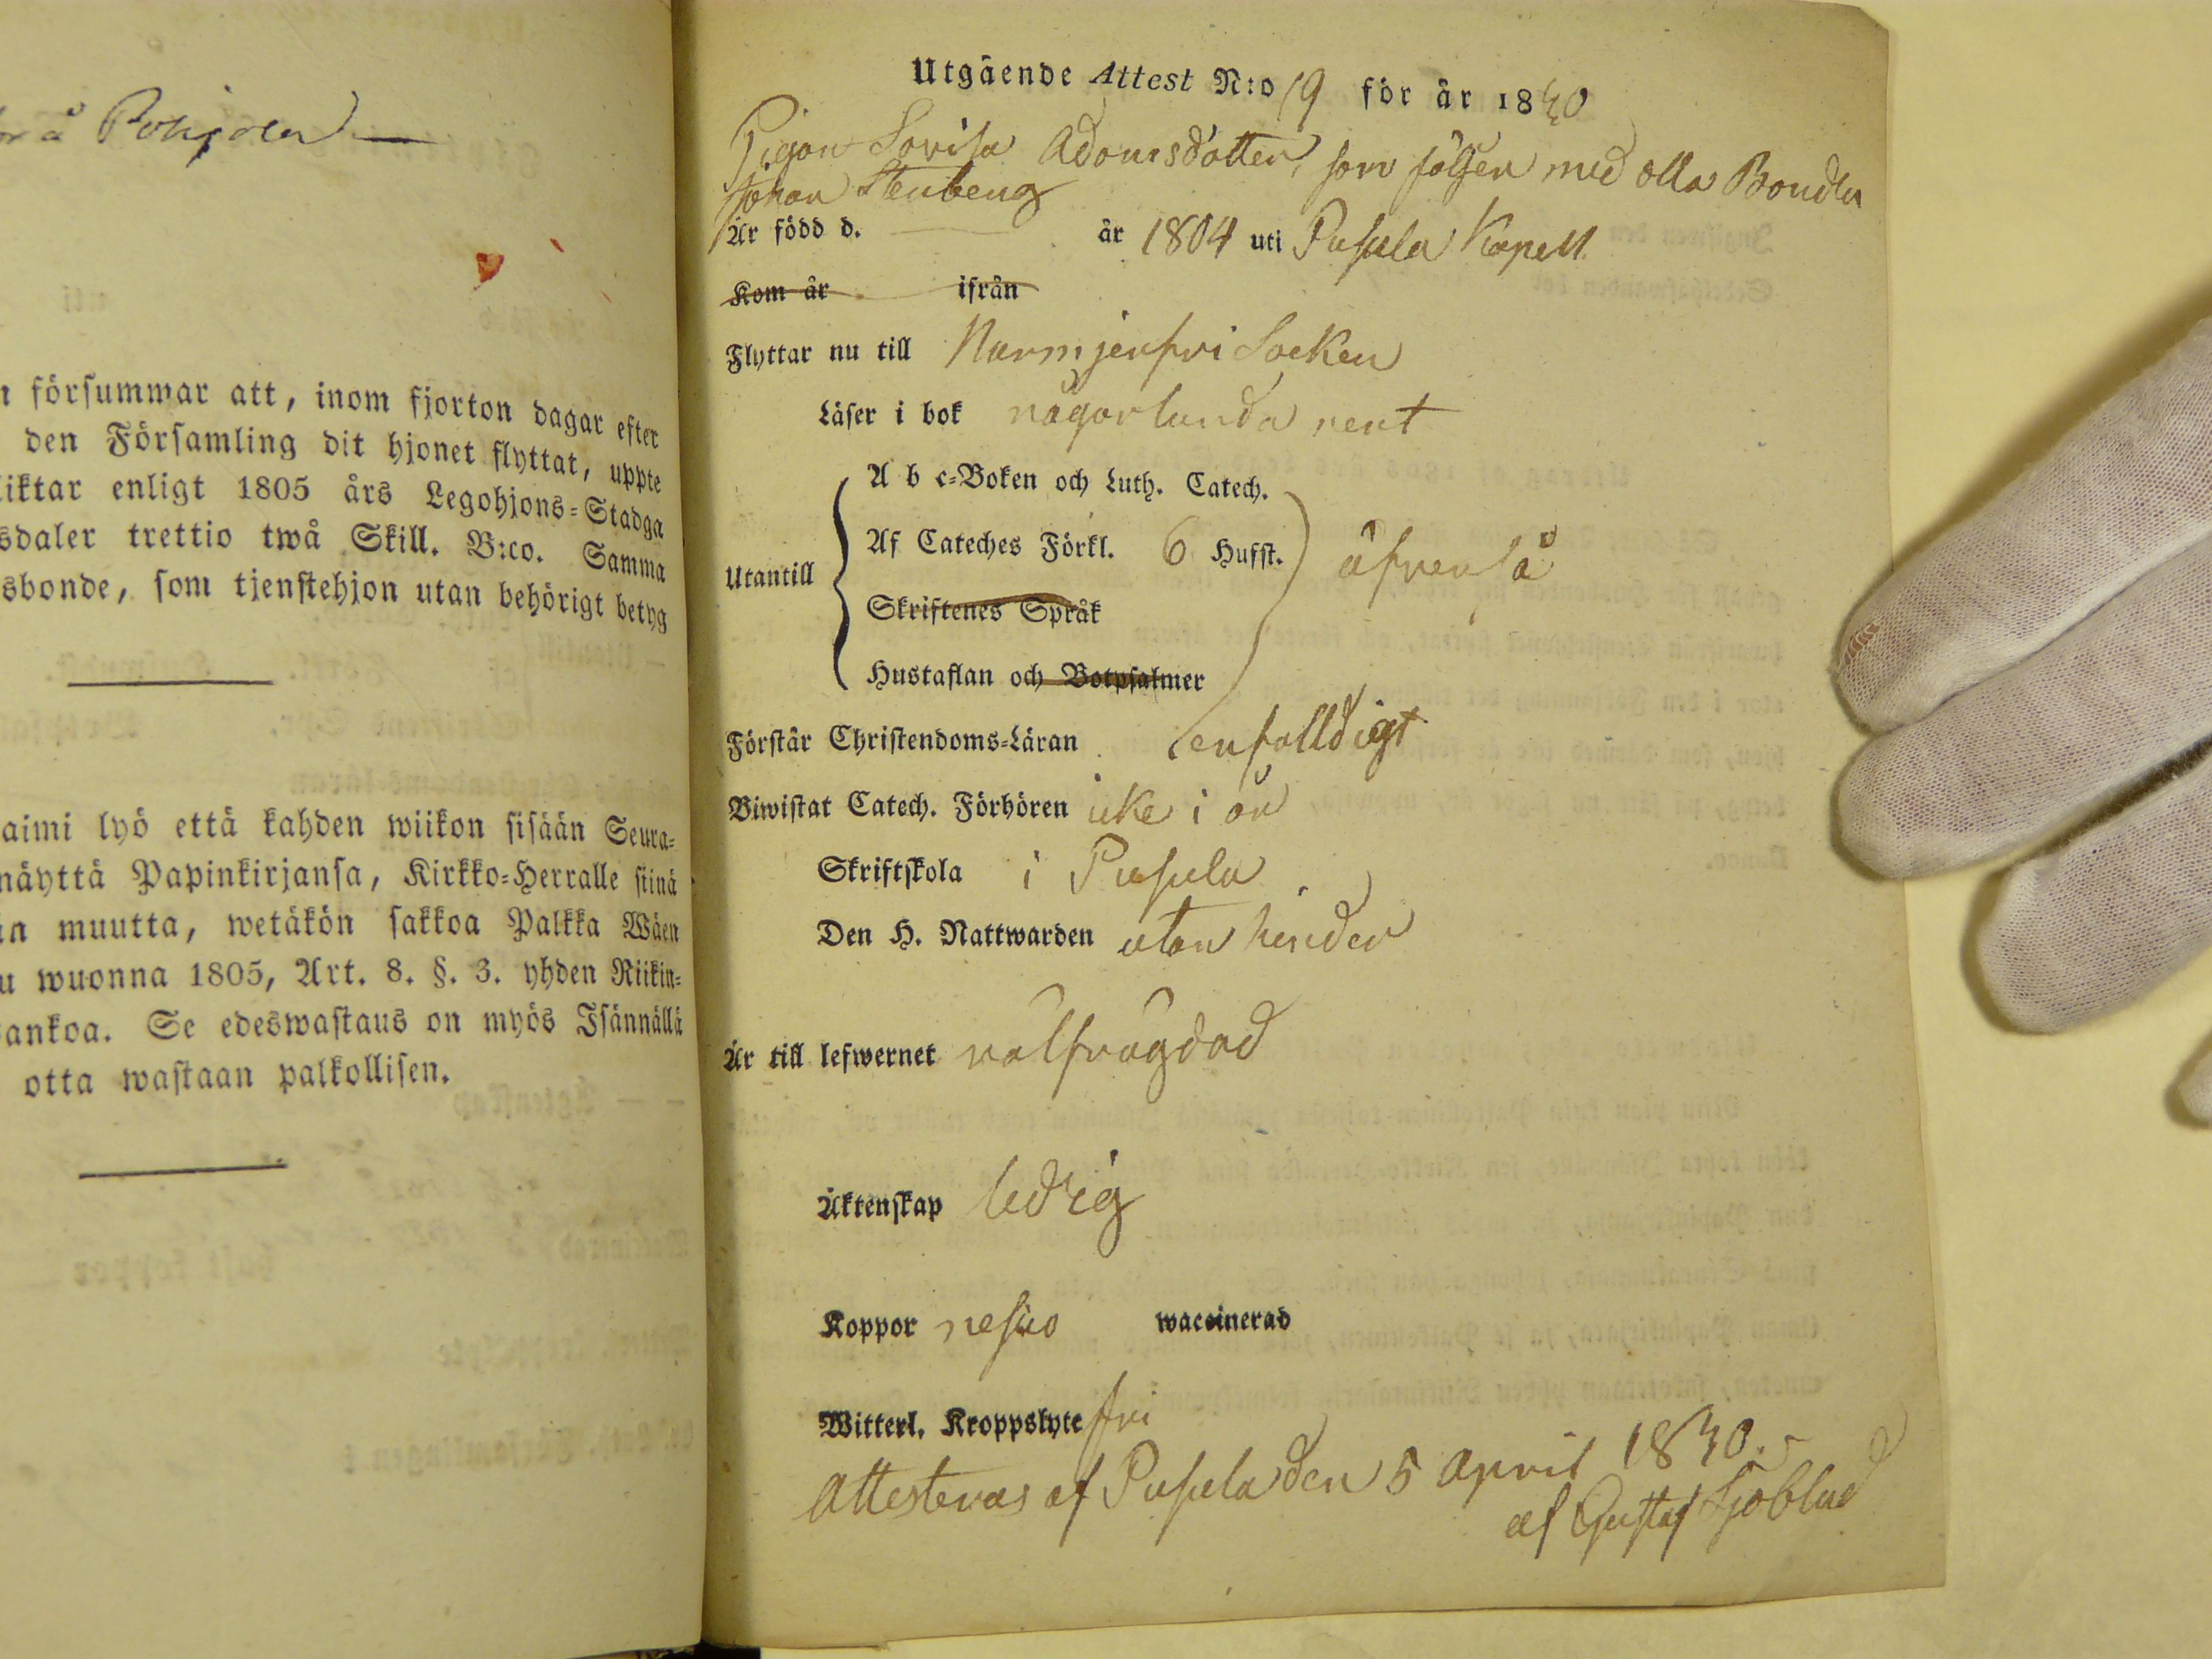 å Pohjola
försummar att, inom fjorton dagar efter
den Församling dit hjonet flyttat, uppte
iktar enligt 1805 års Legohjons-Stadga
sdaler trettio twå Skill. B:co. Samma
sbonde, som tjenstehjon utan behörigt betyg
aimi lyö että kahden wiikon sisään Seura-
näyttä Papinkirjansa, Kirkko-Herralle siinä
in muutta, wetäkön sakkoa Palkka Wäen
u wuonna 1805, Art. 8. §. 3. yhden Riikin-
ankoa. Se edeswastaus on myös Isännällä
otta wastaan palkollisen.
Utgående Attest N:o 19 för år 1830
Pigan Lovisa Adamsdotter, som följer med Bonden
Johan Stenberg
Är född d. — år 1804 uti Pusula Kapell
Kom år ifrån
Flyttar nu till Nurmijerfvi Socken
Läser i bok någorlunda rent
A b c-Boken och Luth. Catech.
Utantill Af Cateches Förkl. 6 Hufst. äfven så
Skriftenes Språk
Hustaflan och Botpsalmer
Förstår Christendoms-Läran enfalldigt
Biwistat Catech. Förhören icke i år
Skriftskola i Pusula
Den H. Nattwarden utan hinder
Är till lefwernet välfrägdad
Äktenskap ledig
Koppor waccinerad
Witterl. Kroppslyte fri
Attesteras af Pusula den 5 April 1830.
af Gustaf Sjöblad